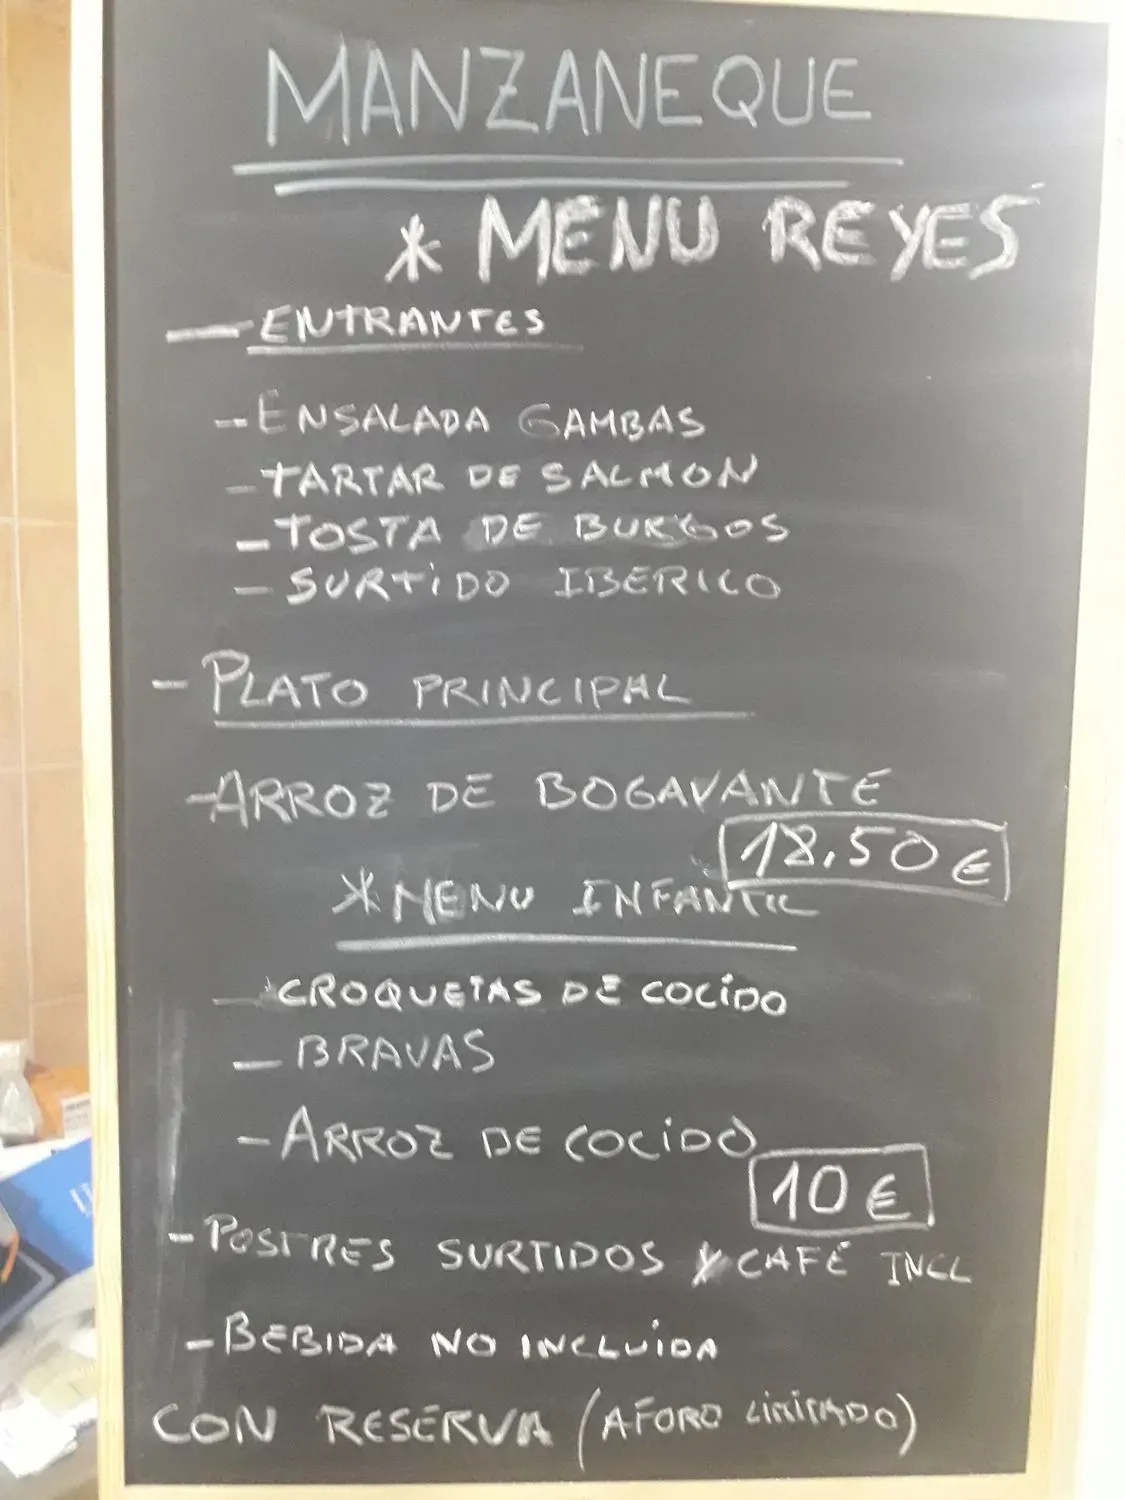 MANZANEQUE
* MENU REYES
- ENTRANTES
- ENSALADA GAMBAS
- TARTAR DE SALMON
- TOSTA DE BURGOS
- SURTIDO IBERICO
- PLATO PRINCIPAL
- ARROZ DE BOGAVANTE
18,50 €
* MENU INFANTIL
- CROQUETAS DE COCIDO
- BRAVAS
- ARROZ DE COCIDO
10 €
- POSTRES SURTIDOS Y CAFÉ INCL
- BEBIDA NO INCLUIDA
CON RESERVA (AFORO LIMITADO)